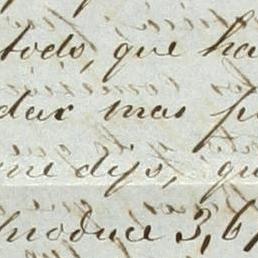 todo, que ha
dar mas p
me dijo, qu
produce 3,6